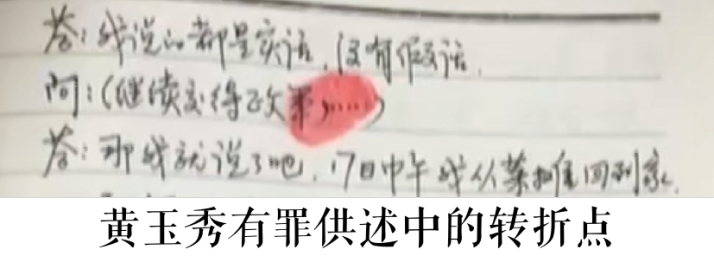 答：我说的都是实话，没有假话。
问：（继续交待政策……）
答：那我就说了吧，17日中午我从菜摊回到家，
黄玉秀有罪供述中的转折点